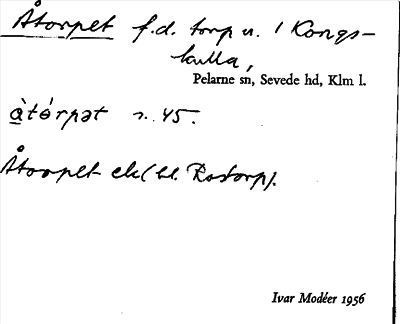 Åtorpet f.d. torp u. 1 Kongs-
kulla,
Pelarne sn, Sevede hd, Klm l.
å̀tórpət s. 45.
Åtorpet ek (bl. Rostorp).
Ivar Modéer 1956